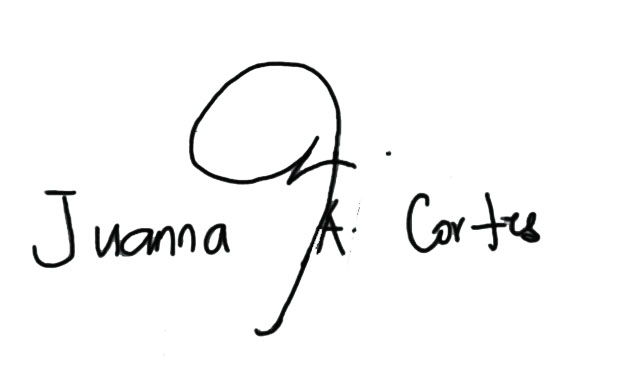 Juanna A. Cortes